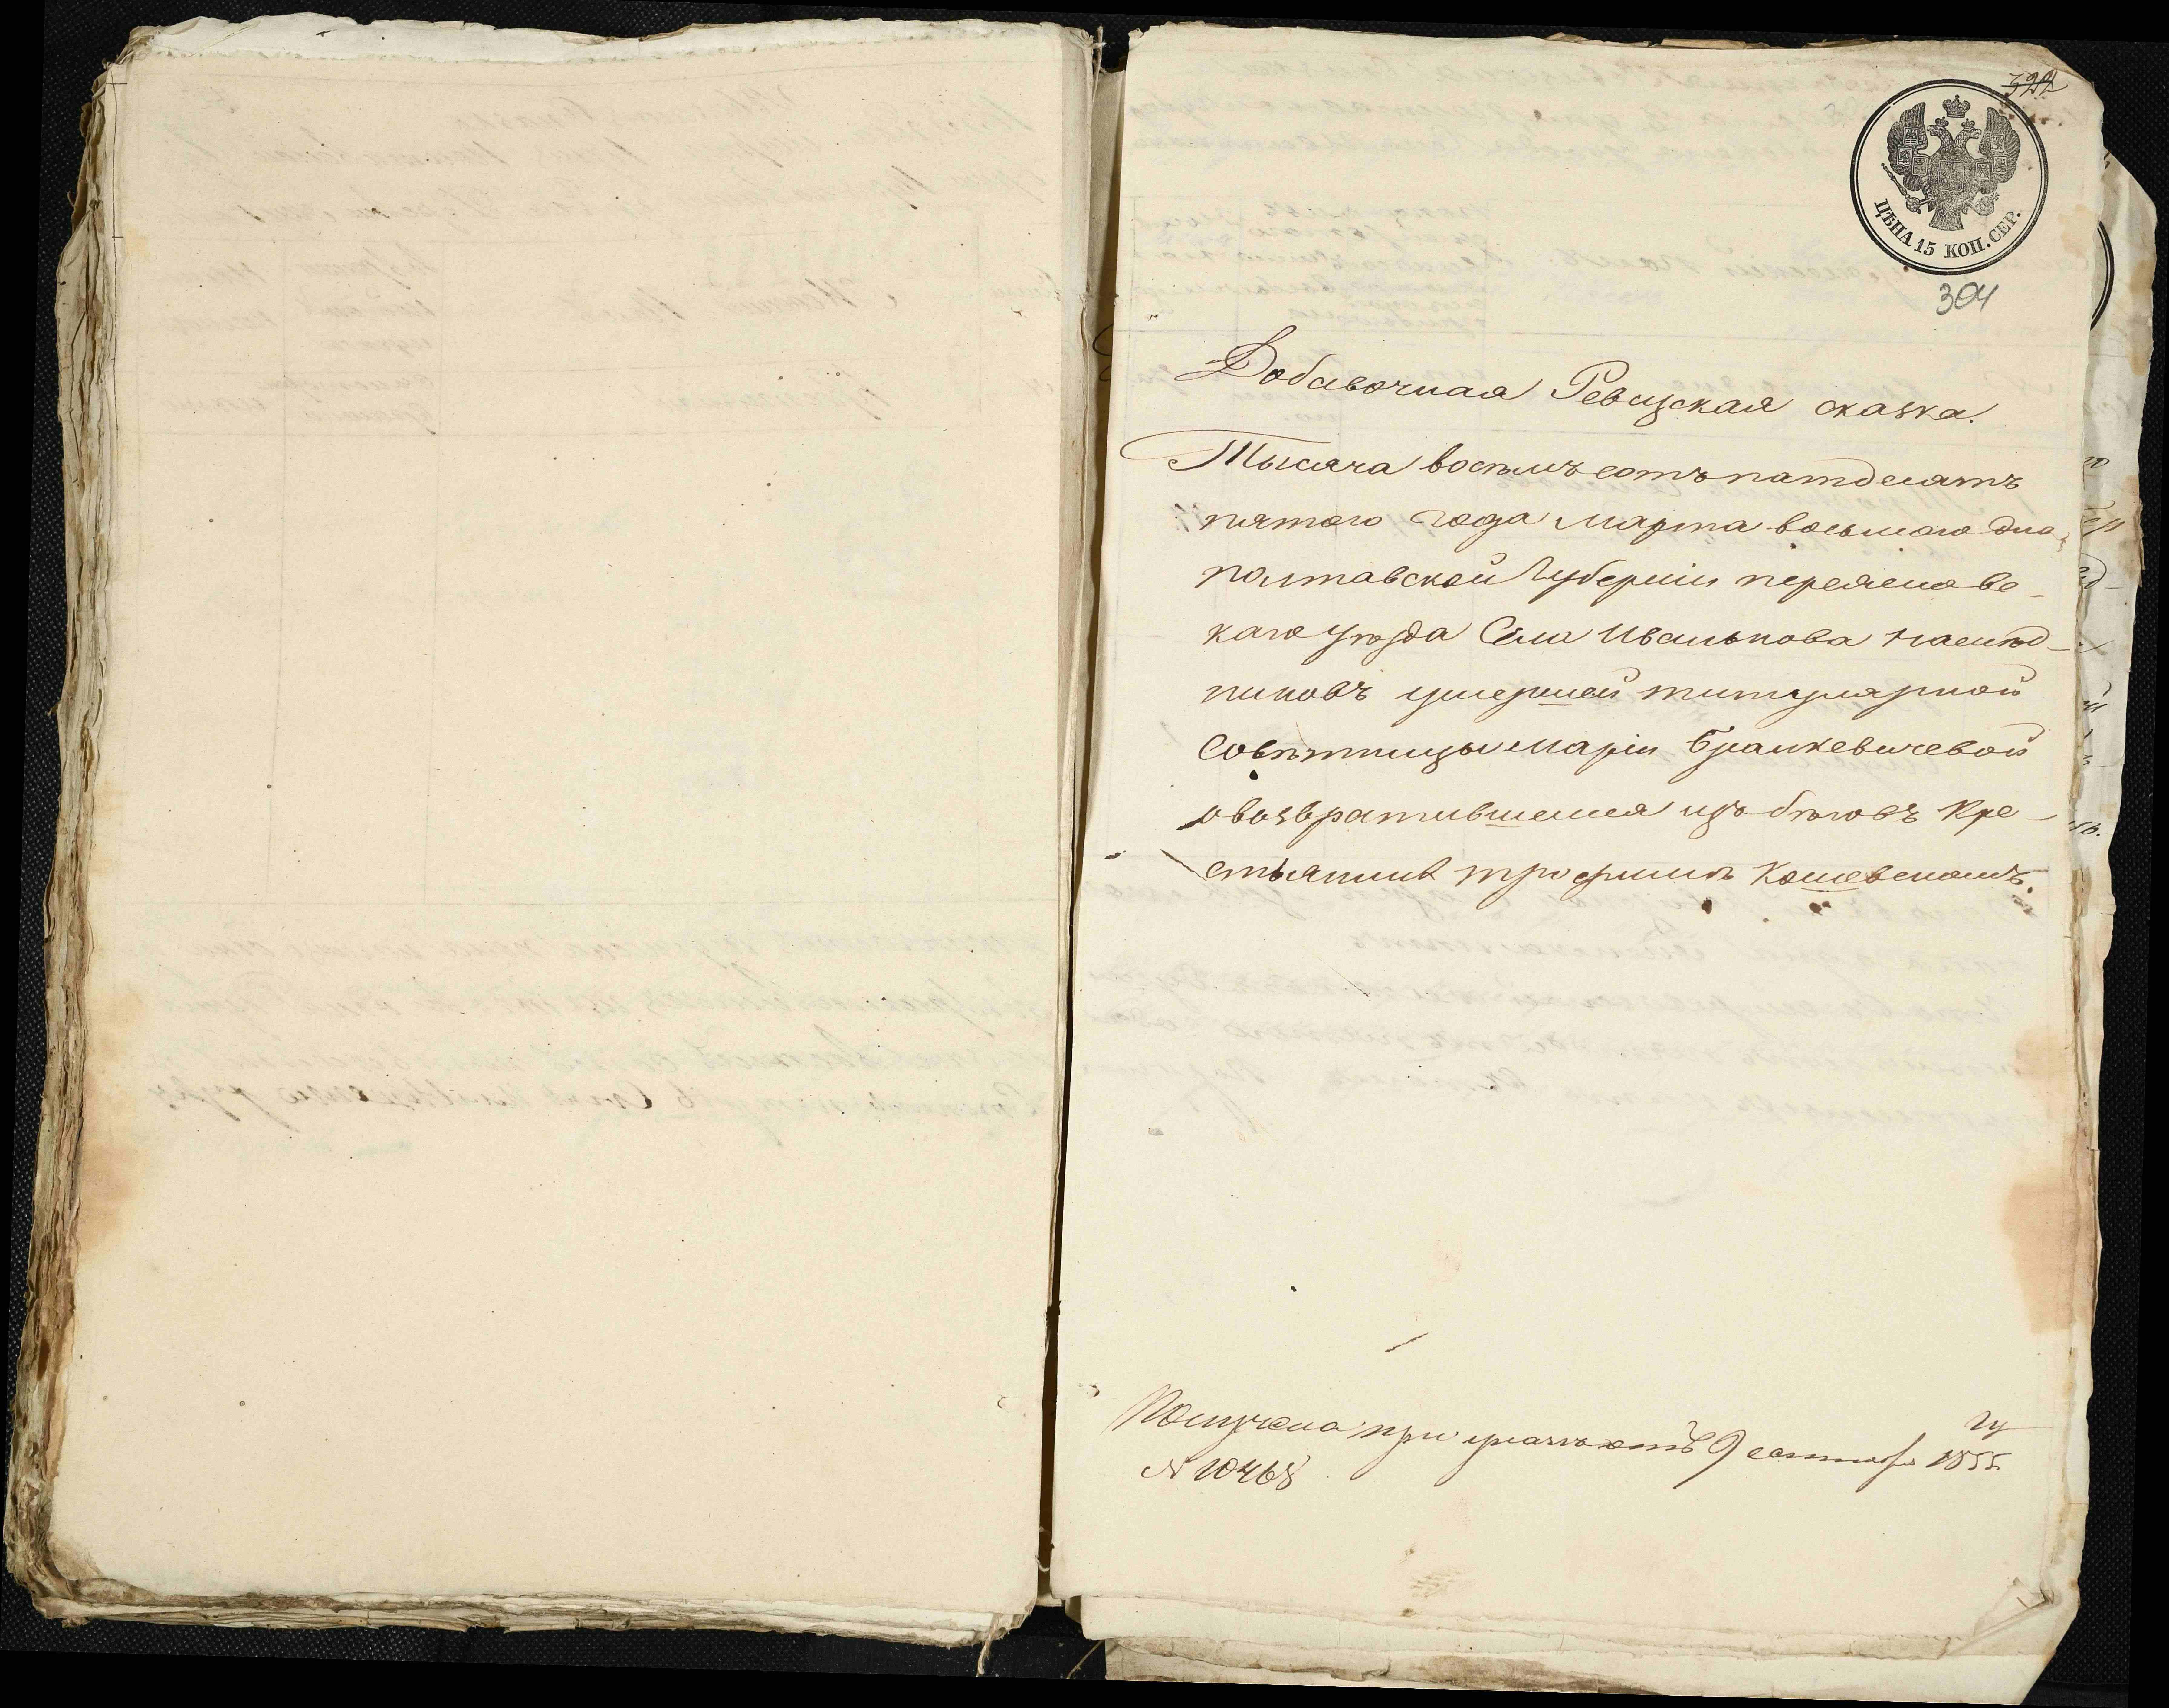 322
ЦѢНА 15 КОП. СЕР.
304
Добавочная Ревизская сказка.
Тысяча восемъ сотъ патдесятъ
пятого года марта восьмого дна,
полтавской Губерніи переяславс-
каго уѣзда Села Иванькова наслѣд-
никовъ умершей титулярной
Совѣтницы Маріи Бранкевичевой
о возвратившемся изъ бѣговъ кре-
стьянинѣ трофимѣ Кошевскомъ.
Получена при указѣ 9 сентября 1855
№ 10468